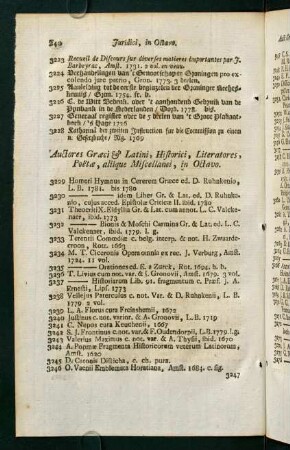 240 Juridici, in Octavo.
3223 Recueil de Discours sur diverses matieres importantes par J.
Barbeyrac, Amst. 1731. 2 vol. en veau.
3224 Verhandelingen van 't Genootschap te Groningen pro ex-
colendo jure patrio, Gron. 1773. 3 deelen.
3225
3226 C. de Witt
3227 Generaal register over de 5 deelen van 't Groot Placaet-
boek / 's Hage 1726
3228
Auctores Græci & Latini, Historici, Literatores,
Poëtæ, aliique Miscellanei, in Octavo.
3229 Homeri Hymnus in Cererem Græce ed. D. Ruhnkenio,
L. B. 1782. bis 1780
3230 —— idem Liber Gr. & Lat. ed. D. Ruhnke-
nio, cujus acced. Epistolæ Criticæ II. ibid. 1780
3231 Theocriti X. Eidyllia Gr. & Lat. cum annot. L. C. Valcke-
naer, ibid. 1773
3232 —— Bionis & Moschi Carmina Gr. & Lat. ed. L. C.
Valckenaer, ibid. 1779. l. g.
3233 Terentii Comœdiæ c. belg. interp. c. not. H. Zwaerde-
croon, Rott. 1663
3234 M. T. Ciceronis Opera omnia ex rec. J. Verburg, Amst.
1724. 11 vol.
3235 —— Orationes ed. &
3236 T. Livius cum not. var. & J. Gronovii, Amst. 1679. 3 vol.
3237 —— Historiarum Lib. 91. fragmentum c. Præf. J. A.
Ernesti, Lips. 1773
3238 Vellejus Paterculus c. not. Var. & D. Ruhnkenii, L. B.
1779 2 vol.
3239 L. A. Florus cura Freinshemii, 1667
3240 Justinus c. not. varior. & A. Gronovii, L. B. 1719
3241 C. Nepos cura Keuchenii, 1667
3242 S. J. Frontinus c. not. var. & F. Oudendorpii, L.B. 1779. l.g.
3243 Valerius Maximus c. not. var. & A. Thysii, ibid. 1670
3244 A. Popmæ Fragmenta Historicorum veterum Latinorum,
Amst. 1620
3245 D. Catonis Disticha, c. ch. pura.
3246 O. Vaenii Emblemata Horatiana, Amst. 1684. c. fig.
3247